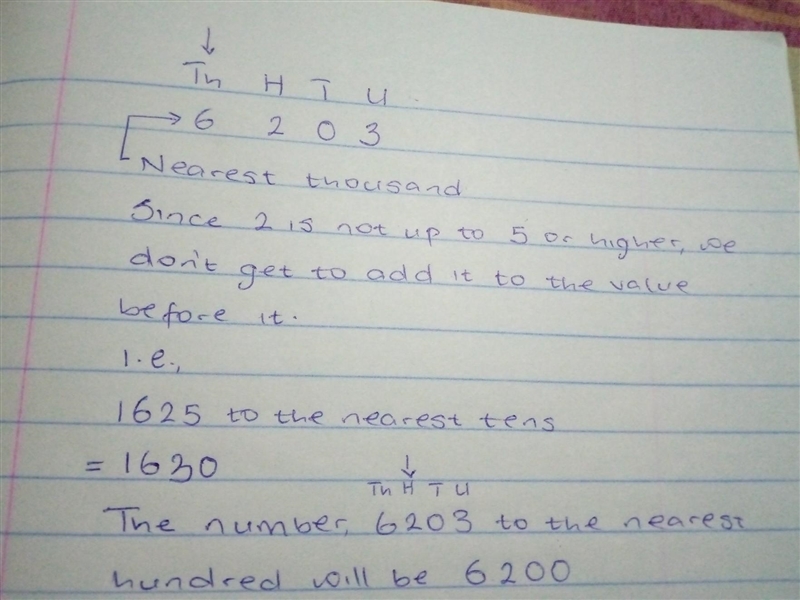 ↓
Th H T U
→ 6 2 0 3
Nearest thousand
Since 2 is not up to 5 or higher, we
don't get to add it to the value
before it.
I.e.,
1625 to the nearest tens
= 1630
↓
Th H T U
The number, 6203 to the nearest
hundred will be 6200